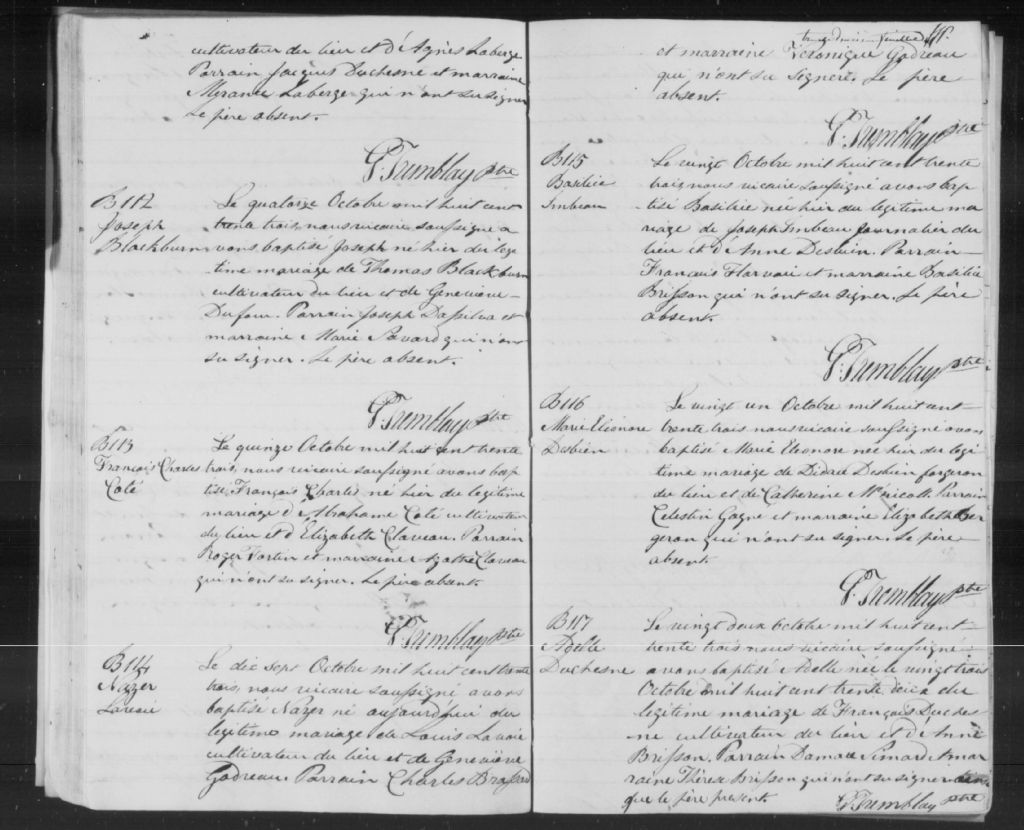 cultivateur du lieu et d'Agnès Laberge
Parrain Jacques Duchesne et marraine
Laberge qui n'ont su signer
Le père absent.
G. Tremblay ptre
B112
Joseph
Blackburn
Le quatorze Octobre mil huit cent
trente trois, nous vicaire soussigné a
vons baptisé Joseph né hier du légi
time mariage de Thomas Blackburn
cultivateur du lieu et de Genevieve
Dufour. Parrain Joseph Dassilva et
marraine Marie Savard qui n'ont
su signer. Le père absent.
G. Tremblay ptre
B113
François Charles
Coté
Le quinze Octobre mil huit cent trente
trois, nous vicaire soussigné avons bap
tisé François Charles né hier du légitime
mariage d'Abrahame Coté cultivateur
du lieu et d'Elizabeth Claveau. Parrain
Roger Fortin et marraine Agathe Claveau
qui n'ont su signer. Le père absent.
G. Tremblay ptre
B114
Nazer
Lavoie
Le dix sept Octobre mil huit cent trente
trois, nous vicaire soussigné avons
baptisé Nazer né aujourd'hui du
légitime mariage de Louis Lavoie
cultivateur du lieu et de Geneviève
Godreau. Parrain Charles Brassard
feuillet
et marraine Véronique Godreau
qui n'ont su signer. Le père
absent.
G. Tremblay ptre
B115
Basilice
Imbeau
Le vingt Octobre mil huit cent trente
trois, nous vicaire soussigné avons bap
tisé Basilice née hier du légitime ma
riage de Joseph Imbeau journalier du
lieu et d'Anne Desbien. Parrain
François Harvai et marraine Basilice
Brisson qui n'ont su signer. Le père
absent.
G. Tremblay ptre
B116
Marie Eleonore
Desbien
Le vingt un Octobre mil huit cent
trente trois nous vicaire soussigné avons
baptisé Marie Eleonore née hier du légi
time mariage de Didace Desbien forgeron
du lieu et de Catherine McNicoll. Parrain
Celestin Gagné et marraine Elizabeth Ber
geron qui n'ont su signer. Le père
absent.
G. Tremblay ptre
B117
Adelle
Duchesne
Le vingt deux Octobre mil huit cent
trente trois nous vicaire soussigné
avons baptisé Adelle née le vingt trois
Octobre mil huit cent trente deux du
légitime mariage de François Duches
ne cultivateur du lieu et d'Anne
Brisson. Parrain Damase Simard & mar
raine Thérèse Brisson qui n'ont su signer
que le père présent.
G. Tremblay ptre